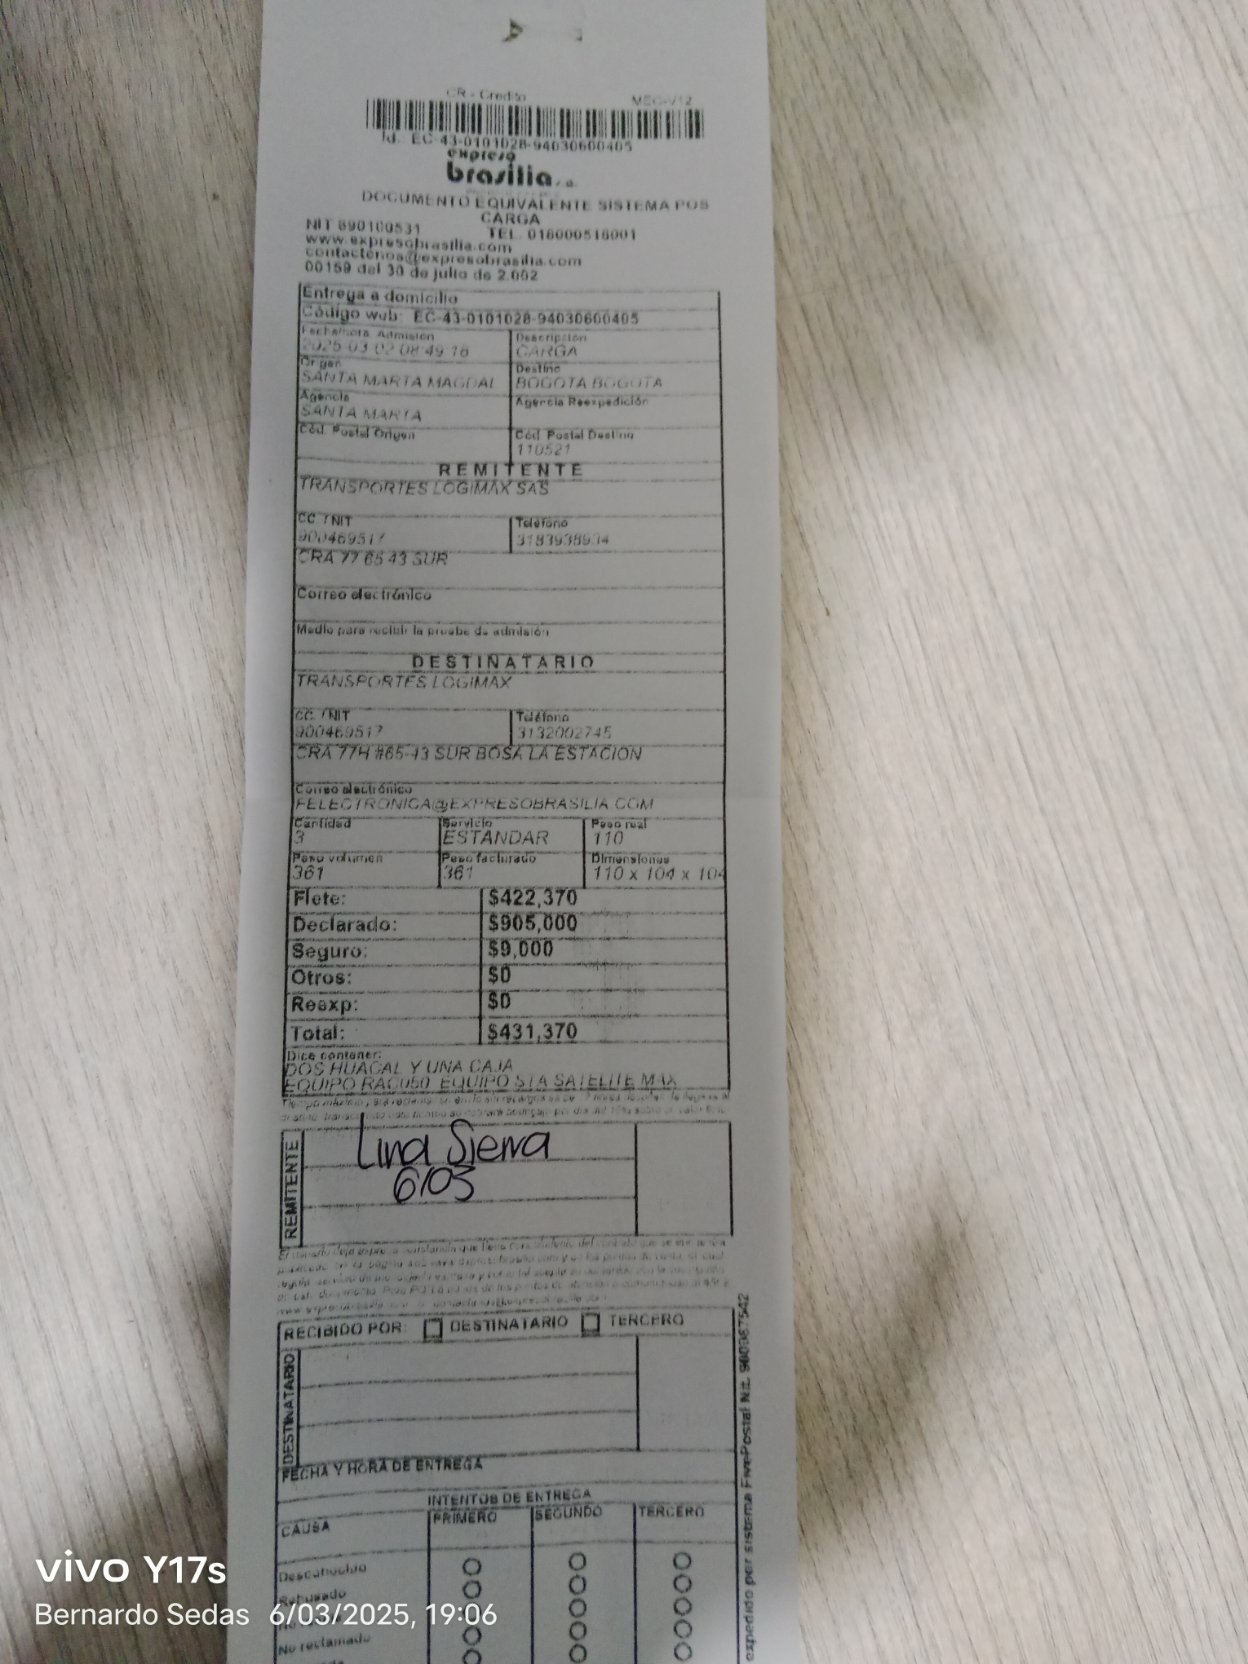 CR - Credito MEC-V12
Id. EC-43-0101028-94030600405
expreso
brasilia s.a.
DOCUMENTO EQUIVALENTE SISTEMA POS
CARGA
NIT 890100531 TEL. 018000518001
www.expresobrasilia.com
contactenos@expresobrasilia.com
00159 del 30 de julio de 2.002
Entrega a domicilio
Código web: EC-43-0101028-94030600405
Fecha/hora Admisión Descripción
2025-03-02 08:49:16 CARGA
Origen Destino
SANTA MARTA MAGDAL BOGOTA BOGOTA
Agencia Agencia Reexpedición
SANTA MARTA
Cód. Postal Origen Cód. Postal Destino
110521
REMITENTE
TRANSPORTES LOGIMAX SAS
CC. / NIT Teléfono
900469517 3183938934
CRA 77 65 43 SUR
Correo electrónico
Medio para recibir la prueba de admisión
DESTINATARIO
TRANSPORTES LOGIMAX
CC. / NIT Teléfono
900469517 3132002745
CRA 77H #65-43 SUR BOSA LA ESTACION
Correo electrónico
FELECTRONICA@EXPRESOBRASILIA.COM
Cantidad Servicio Peso real
3 ESTANDAR 110
Peso volumen Peso facturado Dimensiones
361 361 110 x 104 x 104
Flete: $422,370
Declarado: $905,000
Seguro: $9,000
Otros: $0
Reexp: $0
Total: $431,370
Dice contener:
DOS HUACAL Y UNA CAJA
EQUIPO RACU50 EQUIPO STA SATELITE MAX
REMITENTE
Lina Sierra
6/03
RECIBIDO POR: DESTINATARIO TERCERO
DESTINATARIO
FECHA Y HORA DE ENTREGA
INTENTOS DE ENTREGA
CAUSA PRIMERO SEGUNDO TERCERO
Desconocido
Rehusado
No reclamado
expedido por sistema FivePostal Nit. 900087542
vivo Y17s
Bernardo Sedas 6/03/2025, 19:06